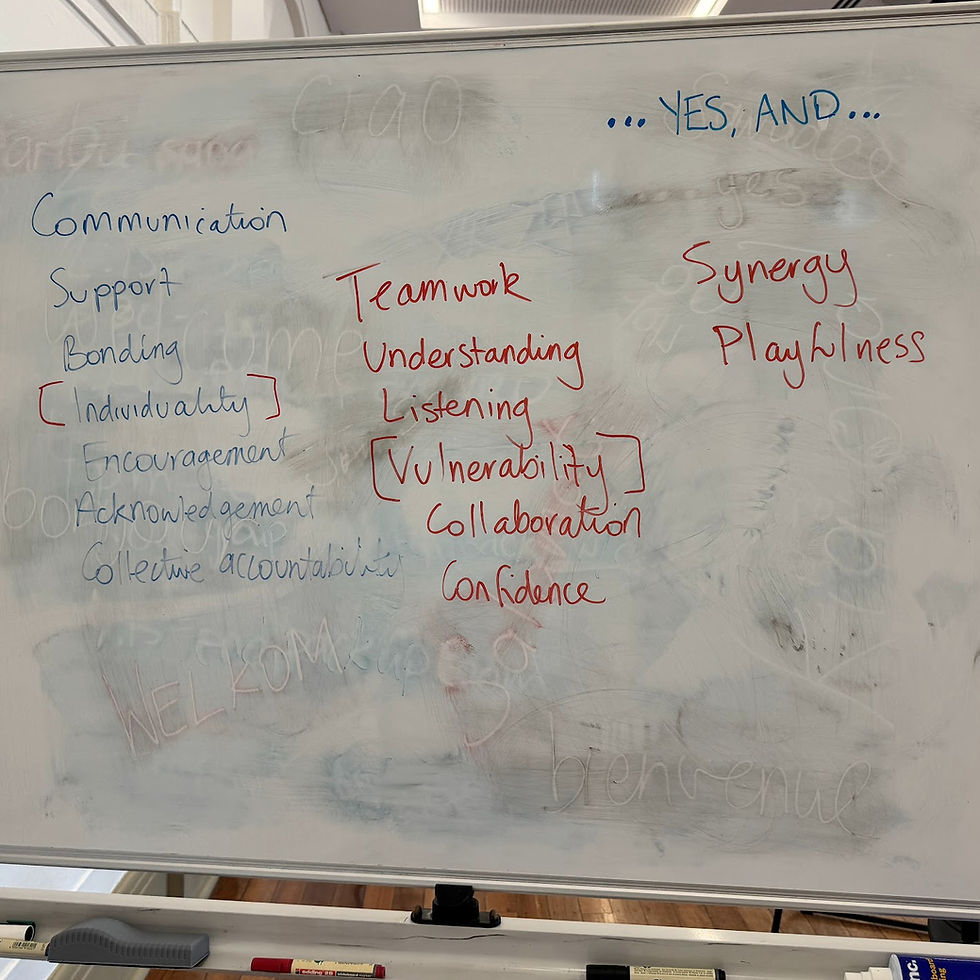 ... YES, AND...
Communication
Support
Bonding
[Individuality]
Encouragement
Acknowledgement
Collective accountability
Teamwork
Understanding
Listening
[Vulnerability]
Collaboration
Confidence
Synergy
Playfulness
ciao
yes
WELKOM
bienvenue
edding